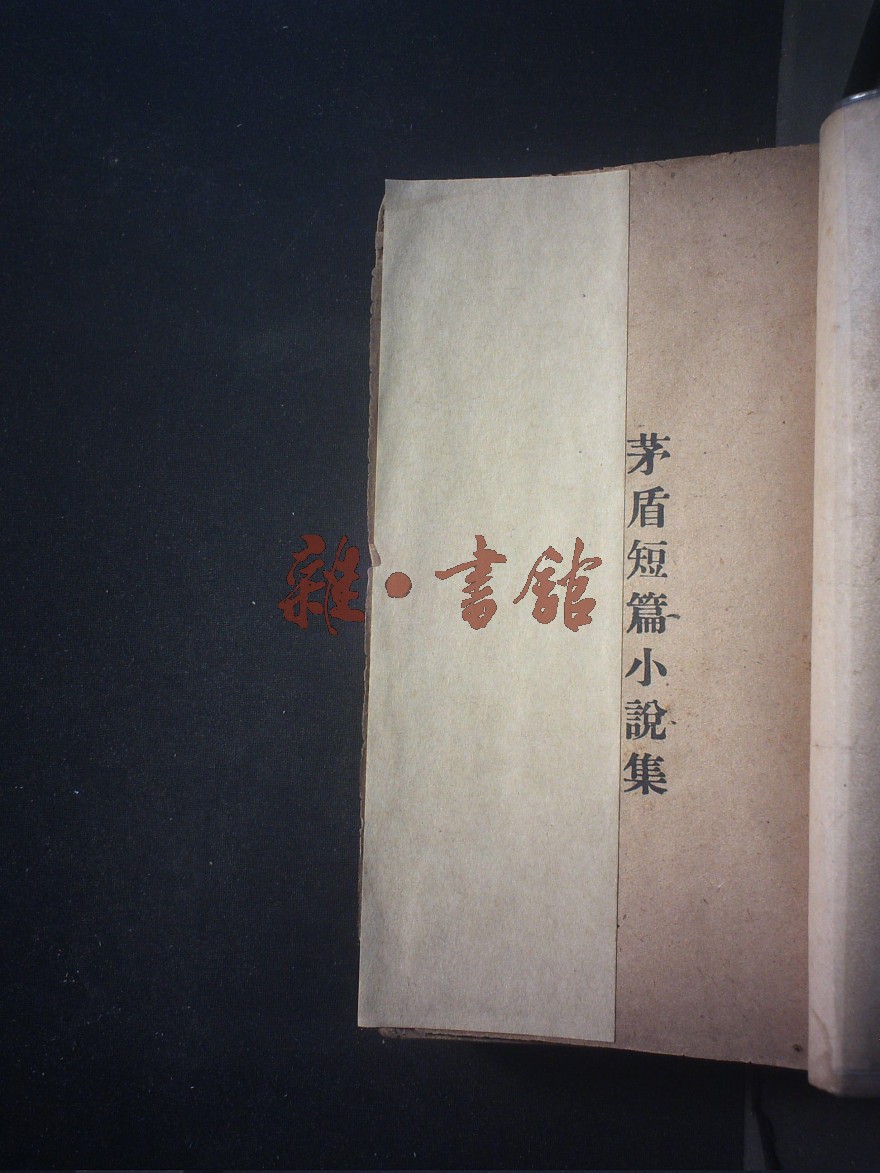 茅盾短篇小說集
雜·書館